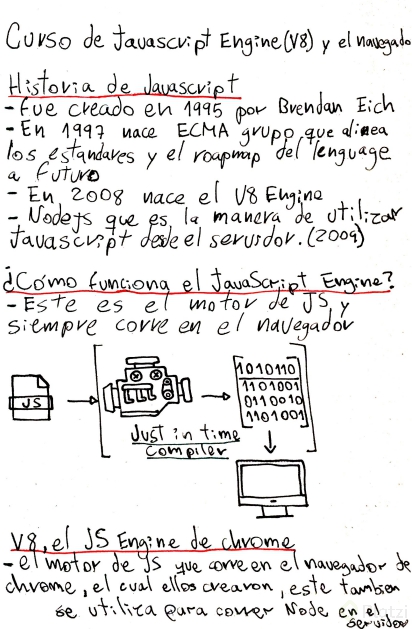 Curso de Javascript Engine(V8) y el navegado
Historia de Javascript
- Fue creado en 1995 por Brendan Eich
- En 1997 nace ECMA grupo que alinea
los estandares y el roapmap del lenguage
a futuro
- En 2008 nace el V8 Engine
- Nodejs que es la manera de utilizar
Javascript desde el servidor. (2009)
¿Cómo funciona el JavaScript Engine?
- Este es el motor de JS y
siempre corre en el navegador
JS
Just in time
Compiler
1010110
1101001
0110010
1101001
V8, el JS Engine de chrome
- el motor de JS que corre en el navegador de
chrome, el cual ellos crearon, este tambien
se utiliza para correr Node en el
servidor